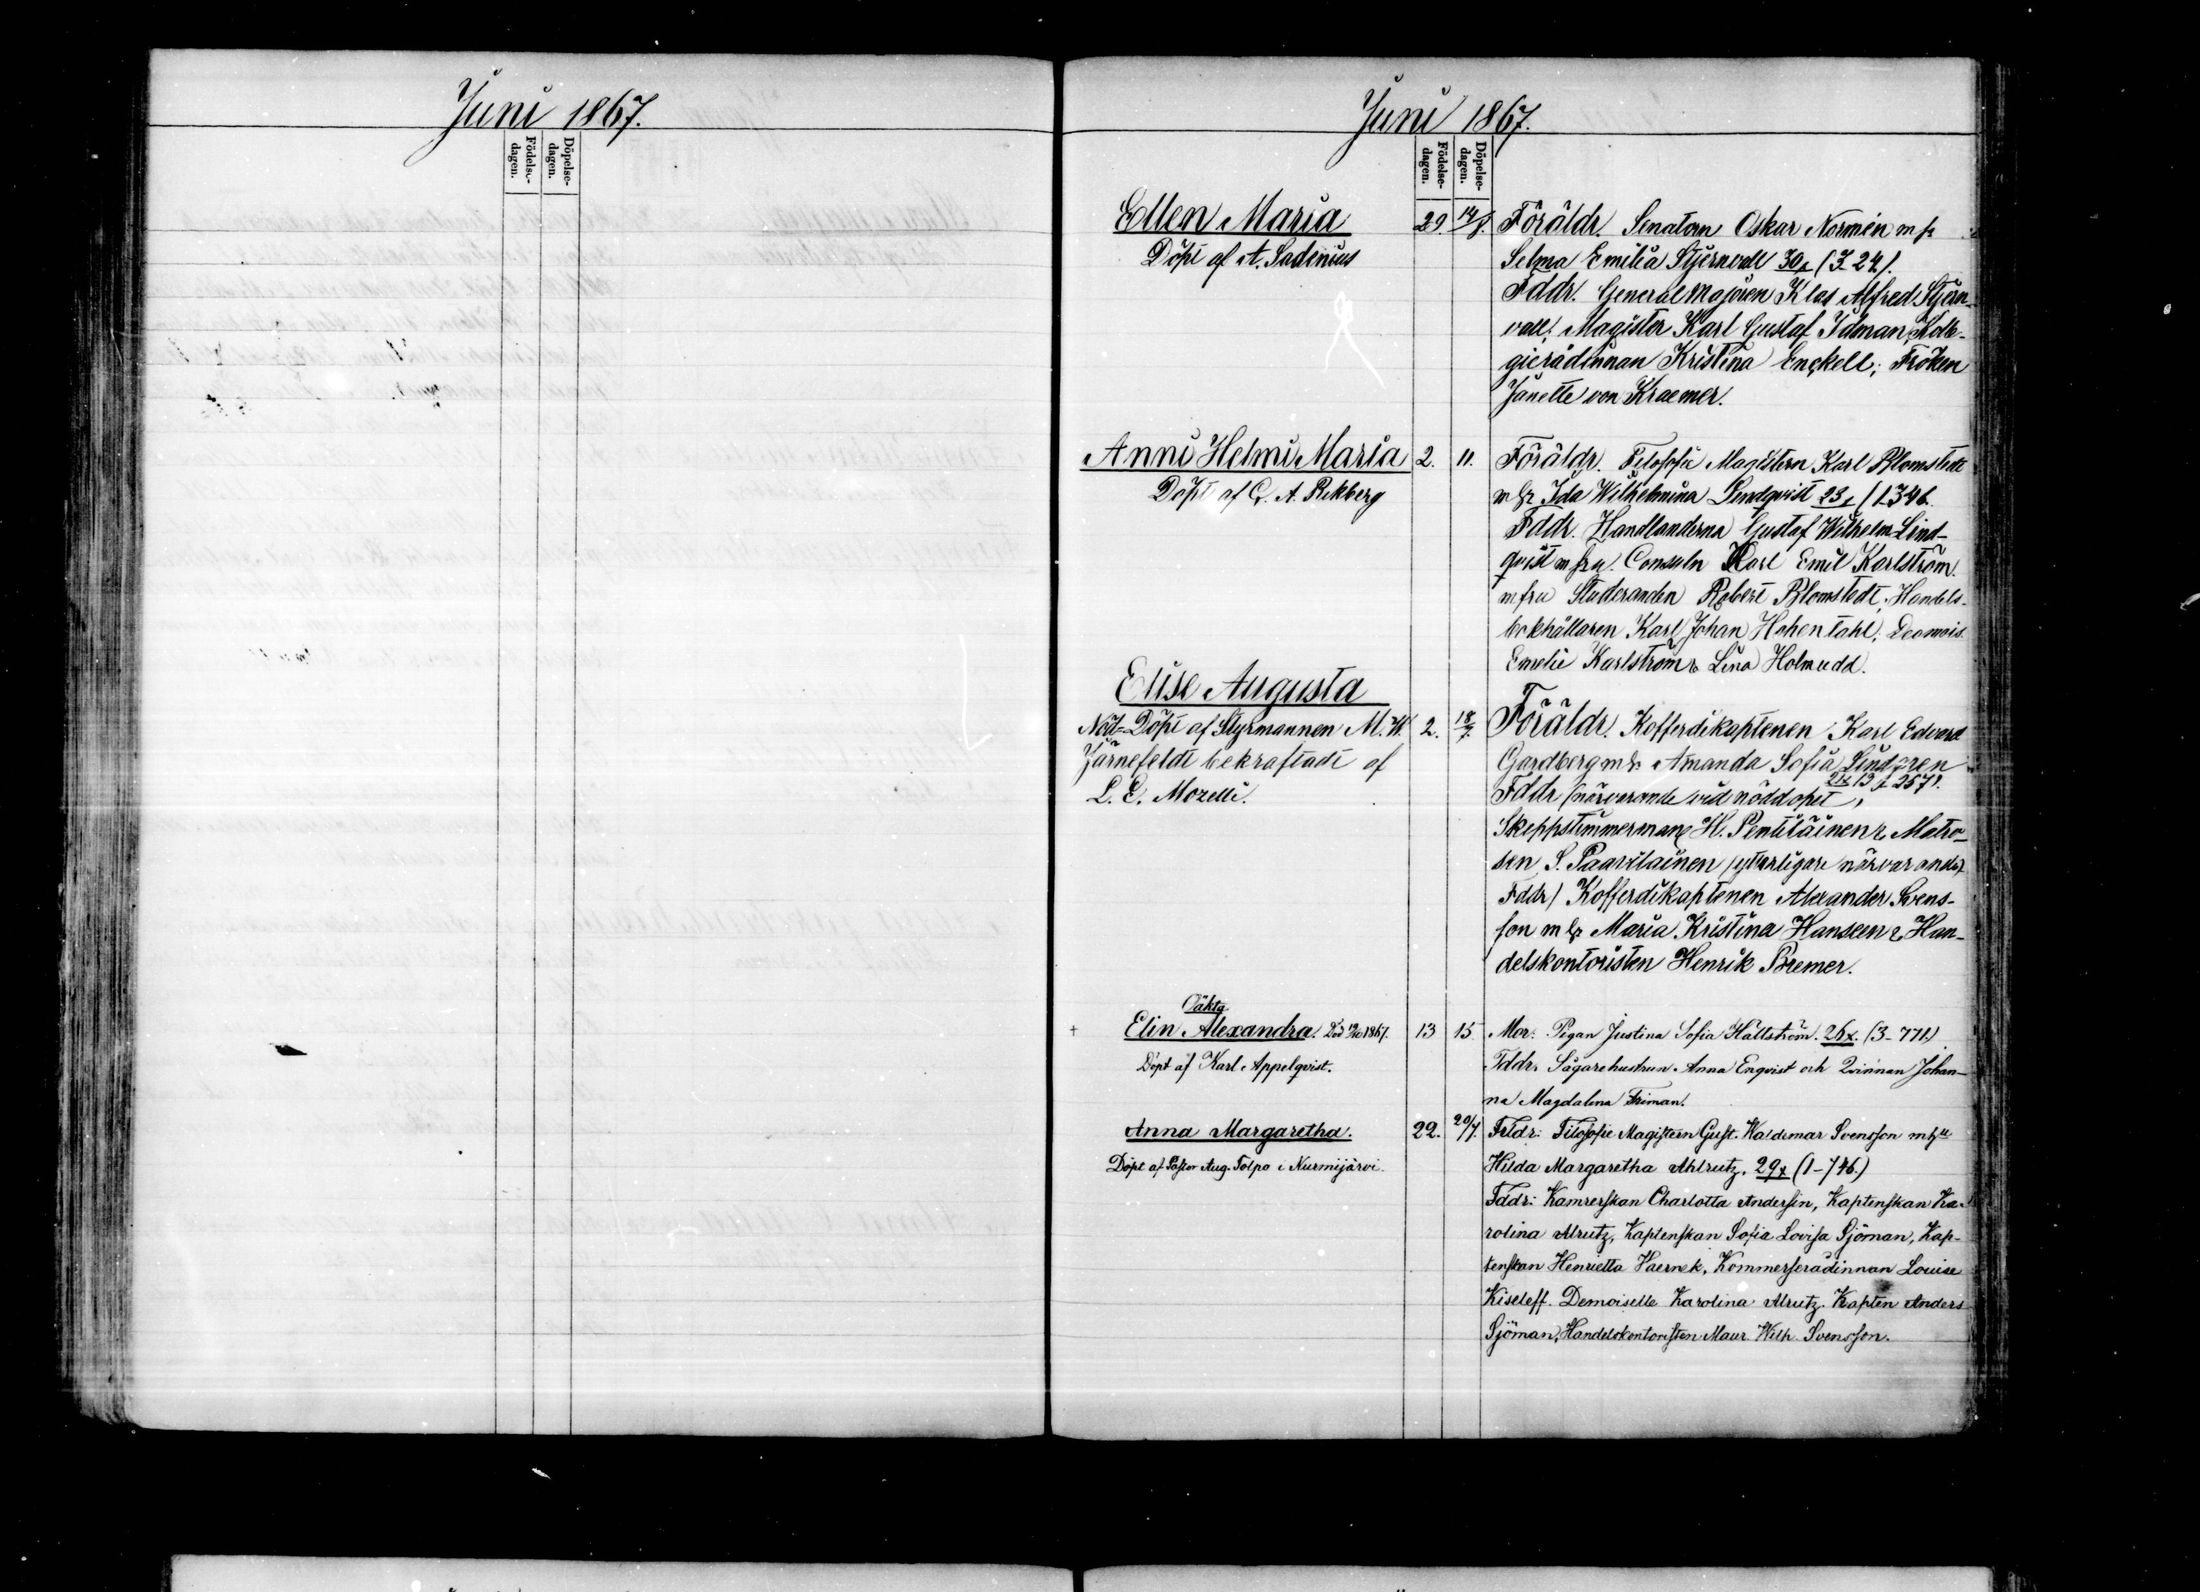 Juni 1867.
Födelse-dagen.
Döpelse-dagen.
Juni 1867.
Födelse-dagen.
Döpelse-dagen.
Ellen Maria 29. 14/8. Föräldr. Senatorn Oskar Normén m fr
Döpt af A. Sadenius Selma Emilia Stjernvall 30 x (3. 24).
Fddr. Generalmajoren Klas Alfred Stjern-
vall, Magister Karl Gustaf Idman, Kolle-
gierådinnan Kristina Enckell; Fröken
Janette von Kraemer.
Anni Helmi Maria 2. 11. Föräldr. Filosofie Magistern Karl Blomstedt
Döpt af G. A. Rekberg m hr Ida Wilhelmina Lindqvist 23 x (1.346.
Fddr. Handlanderna Gustaf Wilhelm Lind-
qvist m fru. Consuln Karl Emil Karlström.
m fru Studeranden Robert Blomstedt, Handels-
bokhållaren Karl Johan Hohentahl, Demois.
Emelie Karlström & Lina Holmudd.
Elise Augusta
Nöd-Döpt af Styrmannen M. W. 2. 18/7. Föräldr. Kofferdikaptenen Karl Edvard
Järnefeldt bekräftadt af Gardberg m hr Amanda Sofia Lindgren
L. E. Mozelli. 21 x (3 f 257).
Fddr (närvarande vid nöddopet,
Skeppstimmerman H. Penttäinen & Matro-
sen S. Paavilainen (ytterligare närvarande
Fddr) Kofferdikaptenen Alexander Svens-
son m hr Maria Kristina Hansen & Han-
delskontoristen Henrik Bremer.
Oäkta
+ Elin Alexandra. Död 1867. 13 15 Mor: Pigan Justina Sofia Hällström. 26 x. (3-771.)
Döpt af Karl Appelqvist. Fddr. Sågarehustrun Anna Enqvist och Qvinnan Johan-
na Magdalena Friman.
Anna Margaretha. 22. 20/7. Frldr: Filosofie Magistern Gust. Waldemar Svensson m hu
Döpt af Pastor Aug. Tolpo i Nurmijärvi. Hilda Margaretha Ahlrutz. 29 x (1-746.)
Fddr: Kamrerskan Charlotta Andersin, Kaptenskan Ka-
rolina Alrutz, Kaptenskan Sofia Lovisa Sjöman, Kap-
tenskan Henrietta Vaernek, Kommerserådinnan Louise
Kiseleff. Demoiselle Karolina Alrutz. Kapten Anders
Sjöman, Handelskontoristen Maur. Wilh. Svensson.